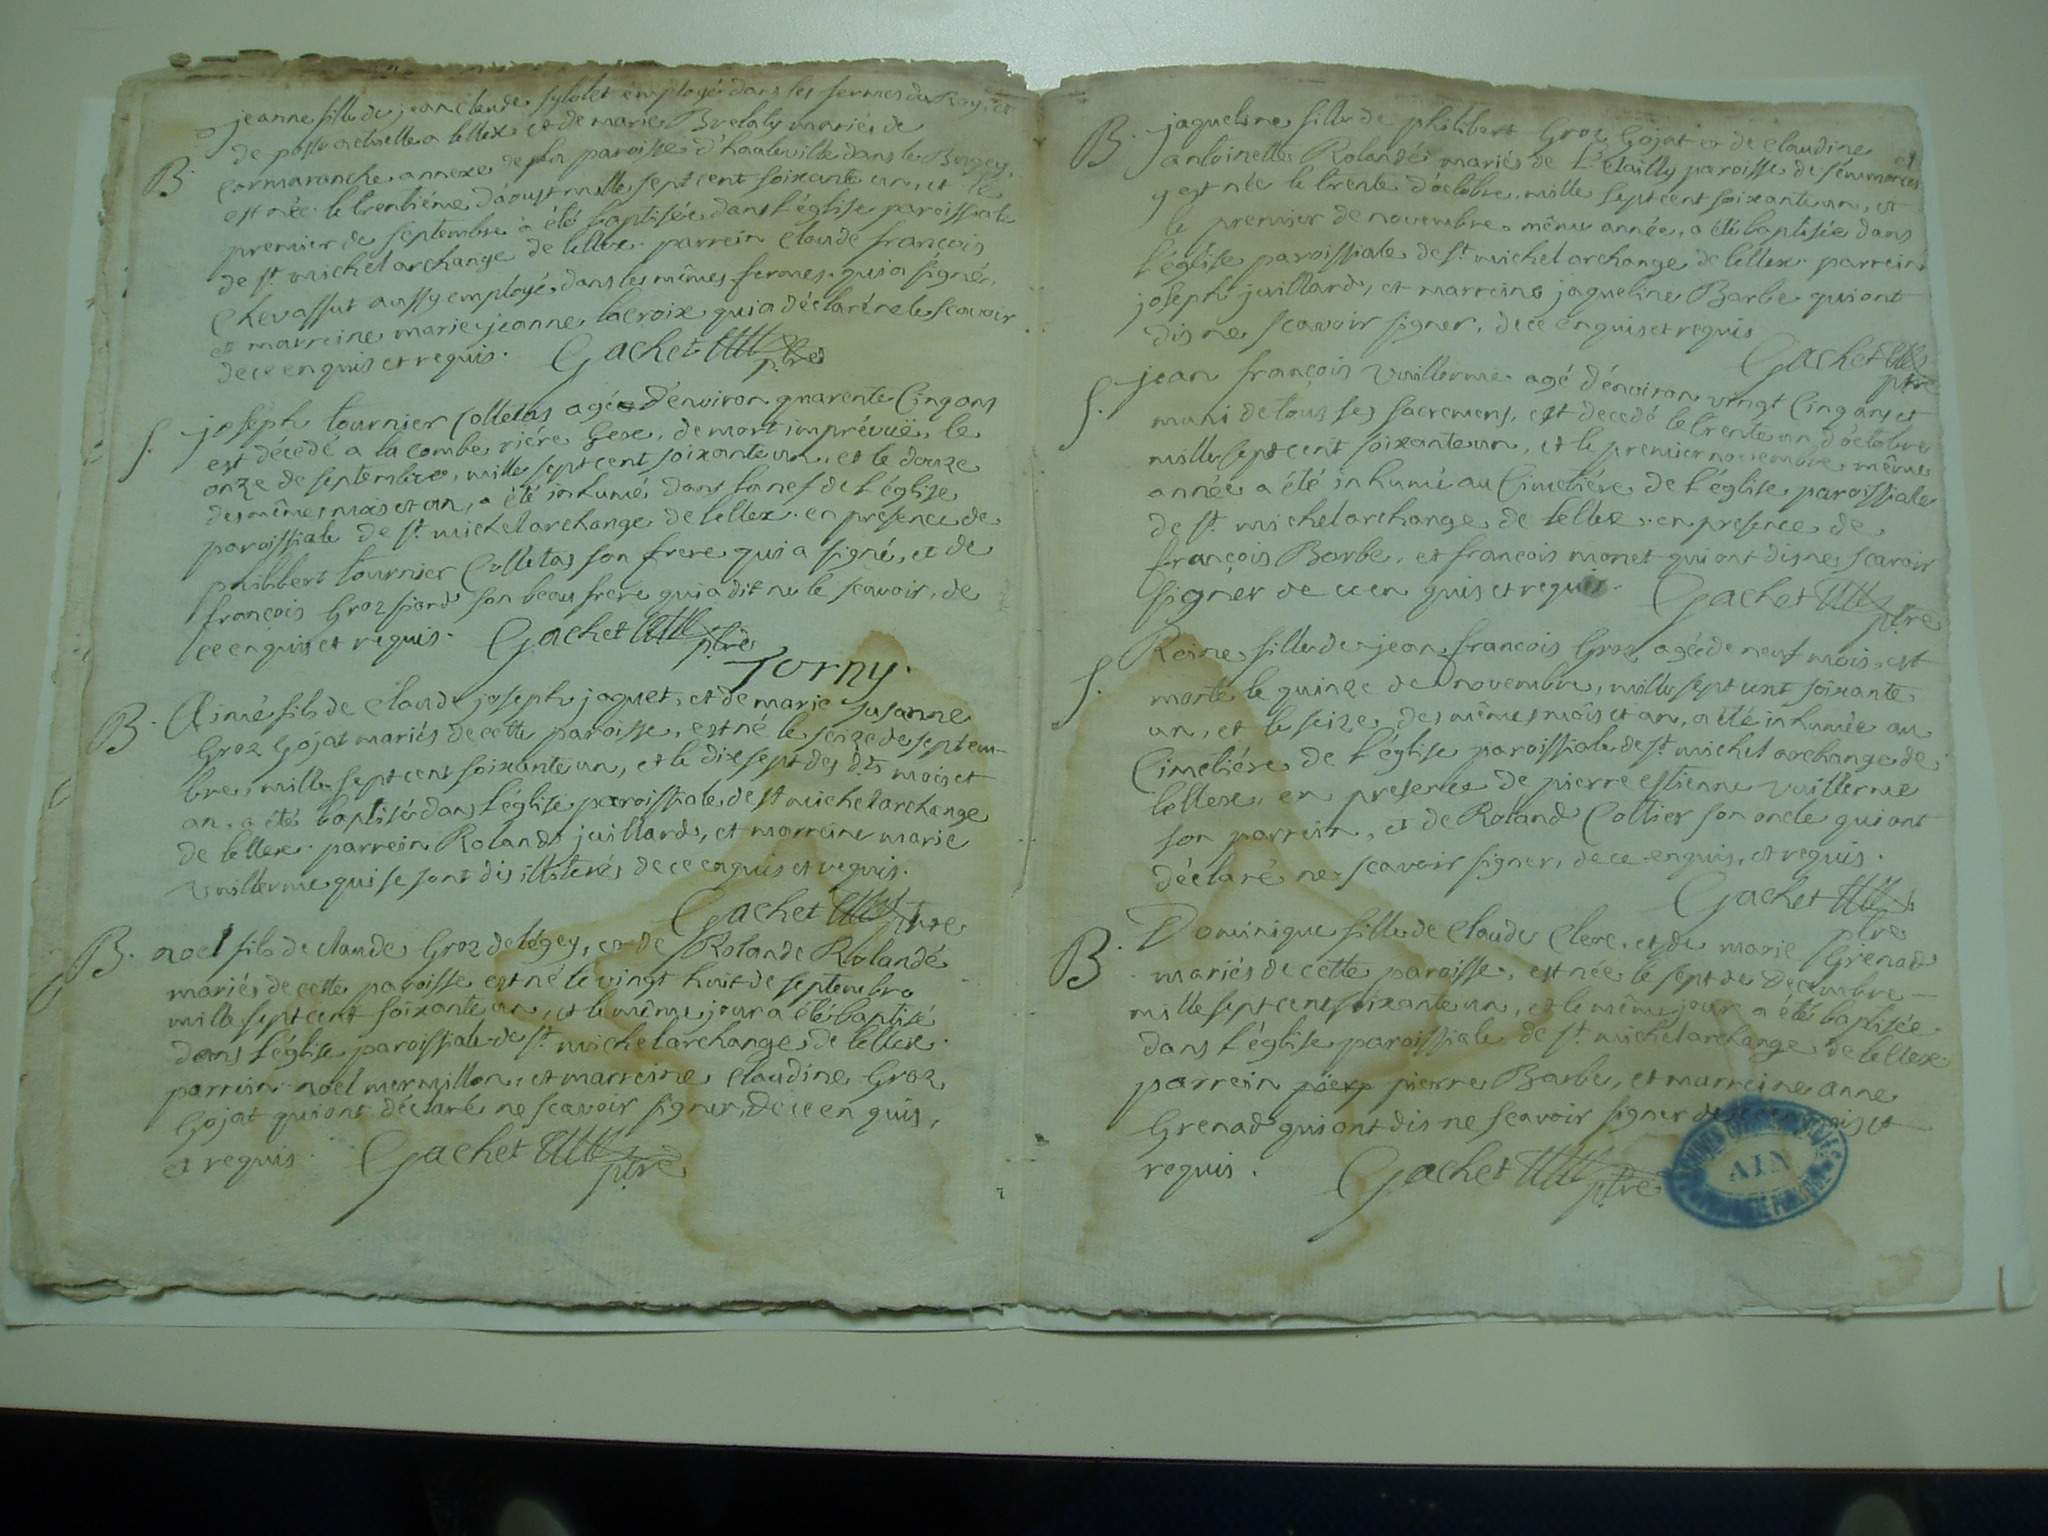 B. jeanne fille de jean claude employé dans les fermes du Roy, et
de poste actuelle a lellex et de marie mariés de
Cormaranche annexe de la paroisse d'hauteville dans le Bugey,
est née le trentiéme d'aoust mille sept cent soixante un, et le
premier de septembre a été baptisée dans l'église paroissiale
de st. michel archange de lellex. parrein claude françois
Chevassut aussy employé dans les mêmes fermes qui a signé,
et marreine marie jeanne lacroix qui a déclaré ne le scavoir
de ce enquis et requis. Gachet ptre
S. joseph tournier Colletas agé d'environ quarente Cinq ans
est décédé a la combe riére Gex, de mort imprévuë, le
onze de septembre, mille sept cent soixante un, et le douze
des mêmes mois et an, a été inhumé dans la nef de l'église
paroissiale de st. michel archange de lellex. en présence de
philibert tournier Colletas son frere qui a signé, et de
françois Groz son beau frere qui a dit ne le scavoir, de
ce enquis et requis. Gachet ptre
Torny.
B. Aimé fils de Claude joseph jaquet, et de marie Susanne
Groz Gojat mariés de cette paroisse, est né le seize de septem-
bre, mille sept cent soixante un, et le dix sept des dts mois et
an, a été baptisé dans l'église paroissiale de st michel archange
de lellex. parrein Roland juillard, et marreine marie
Vuillerme qui se sont dis illiterés de ce enquis et requis.
Gachet ptre
B. noel fils de claude Groz delégey, et de Rolande Rolandé
mariés de cette paroisse est né le vingt huit de septembre
mille sept cent soixante un, et le même jour a été baptisé
dans l'église paroissiale de st. michel archange de lellex.
parrein noel mermillon, et marreine Claudine Groz
Gojat qui ont déclaré ne scavoir signer, de ce en quis,
et requis. Gachet ptre
B. jaqueline fille de philibert Groz Gojat et de Claudine
antoinette Rolandé mariés de paroisse de
y est née le trente d'octobre, mille sept cent soixante un, et
le premier de novembre même année, a été baptisée dans
l'église paroissiale de st. michel archange de lellex. parrein
joseph juillard, et marreine jaqueline Barbe qui ont
dis ne scavoir signer, de ce enquis et requis
Gachet ptre
S. jean françois Vuillerme agé d'environ vingt Cinq ans et
muni de tous ses sacremens, est decedé le trente un d'octobre
mille sept cent soixante un, et le premier novembre même
année a été inhumé au Cimetiére de l'église paroissiale
de st. michel archange de lellex. en presence de
françois Barbe, et françois monet qui ont dis ne scavoir
signer de ce en quis et requis. Gachet ptre
S. Reine fille de jean francois Groz agée de neuf mois, est
morte le quinze de novembre, mille sept cent soixante
un, et le seize des mêmes mois et an, a été inhumée au
Cimetiére de l'église paroissiale de st. michel archange de
lellex, en presence de pierre estienne Vuillerme
son parrein, et de Roland Coltier son oncle qui ont
déclaré ne scavoir signer, de ce enquis, et requis.
Gachet ptre
B. Dominique fille de Claude Clerc, et de marie Grenad
mariés de cette paroisse, est née le sept de Decembre
mille sept cent soixante un, et le même jour a été baptisée
dans l'église paroissiale de st. michel archange de lellex
parrein pierre Barbe, et marreine anne
Grenad qui ont dis ne scavoir signer de ce enquis et
requis. Gachet ptre
AIN